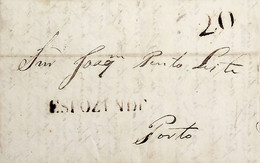 20
Snr Joaqm Pinto Leite
ESPOZENDE
Porto